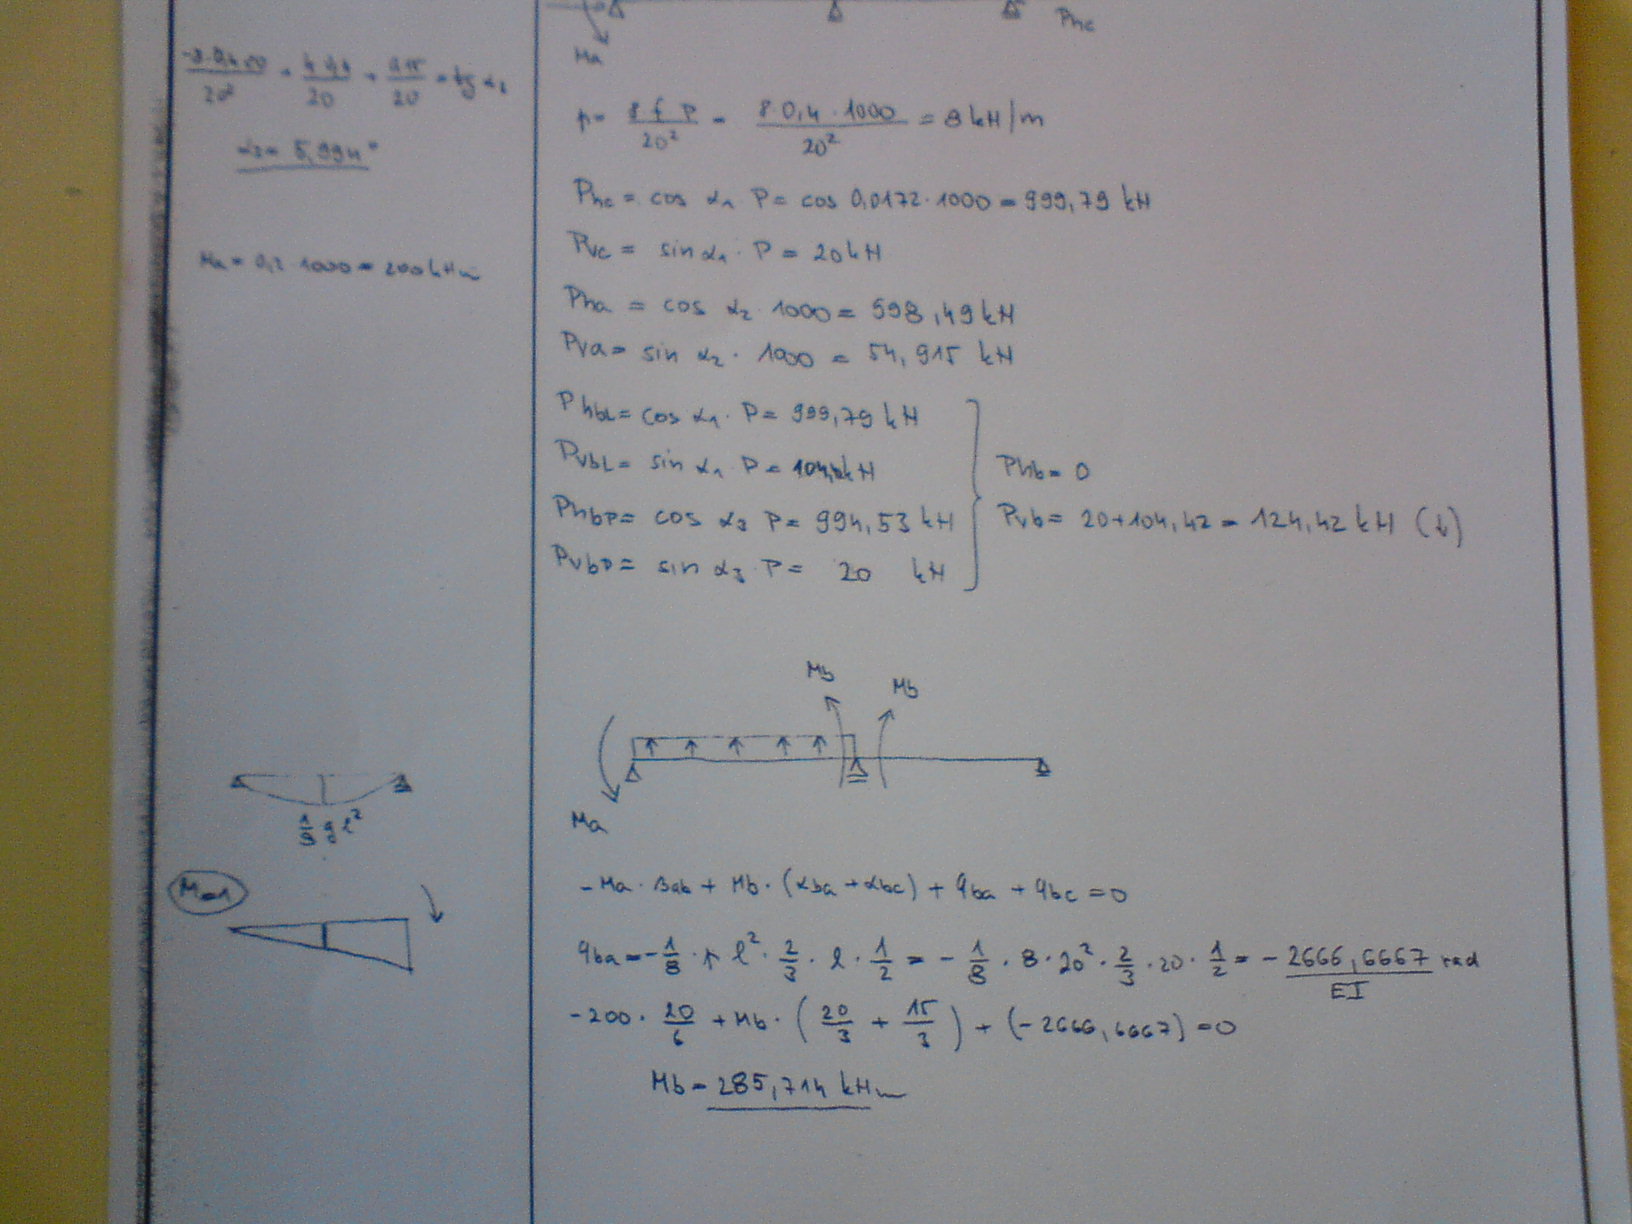 Phc
Ma
+ 4·0,4/20 + 0,15/20 = tg α₂
α₃ = 5,994°
Ma = 0,2 · 1000 = 200 kNm
p = 8·f·P/20² = 8·0,4·1000/20² = 8 kN/m
Phc = cos α₁ · P = cos 0,0172·1000 = 999,79 kN
Pvc = sin α₁ · P = 20 kN
Pha = cos α₂ · 1000 = 998,49 kN
Pva = sin α₂ · 1000 = 54,915 kN
PhbL = cos α₁ · P = 999,79 kN
PvbL = sin α₁ P = kN
Phb = 0
PhbP = cos α₃ P = 994,53 kN
Pvb = 20+104,42 = 124,42 kN (↓)
PvbP = sin α₃ · P = 20 kN
Mb
Mb
Ma
1/8 q l²
M=1
-Ma · βab + Mb · (αba + αbc) + φba + φbc = 0
φba = -1/8 · p l² · 2/3 · l · 1/2 = - 1/8 · 8 · 20² · 2/3 · 20 · 1/2 = - 2666,6667/EI rad
-200 · 20/6 + Mb · (20/3 + 15/3) + (-2666,6667) = 0
Mb = 285,714 kNm